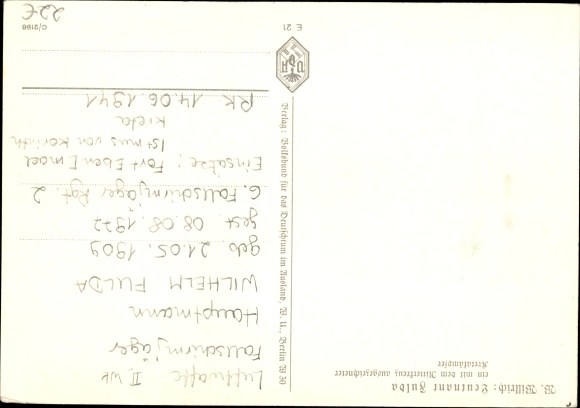 W. Willrich: Leutnant Fulda
ein mit dem Ritterkreuz ausgezeichneter
Kretakämpfer
Verlag: Volksbund für das Deutschtum im Ausland, W. U., Berlin W 30
VDA
E 21
C/9198
22€
Luftwaffe II. WK
Fallschirmjäger
Hauptmann
WILHELM FULDA
geb 21.05.1909
gest. 08.08.1977
6. Fallschirmjäger Rgt. 2
Einsätze: Fort Eben Emael
Istmus von Korinth
Kreta
RK 14.06.1941